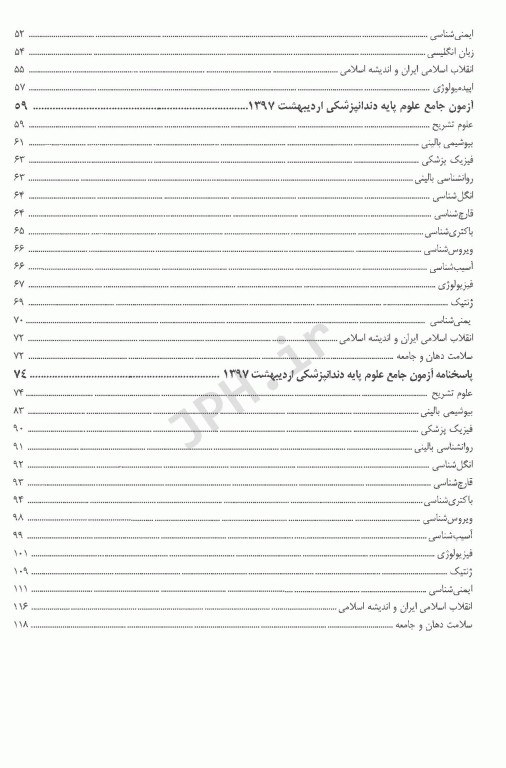 ایمنی‌شناسی ........ ۵۲
زبان انگلیسی ........ ۵۴
انقلاب اسلامی ایران و اندیشه اسلامی ........ ۵۵
اپیدمیولوژی ........ ۵۷
آزمون جامع علوم پایه دندانپزشکی اردیبهشت ۱۳۹۷ ........ ۵۹
علوم تشریح ........ ۵۹
بیوشیمی بالینی ........ ۶۱
فیزیک پزشکی ........ ۶۳
روانشناسی بالینی ........ ۶۳
انگل‌شناسی ........ ۶۴
قارچ‌شناسی ........ ۶۴
باکتری‌شناسی ........ ۶۵
ویروس‌شناسی ........ ۶۶
آسیب‌شناسی ........ ۶۶
فیزیولوژی ........ ۶۷
ژنتیک ........ ۶۹
یمنی‌شناسی ........ ۷۰
انقلاب اسلامی ایران و اندیشه اسلامی ........ ۷۲
سلامت دهان و جامعه ........ ۷۲
پاسخنامه آزمون جامع علوم پایه دندانپزشکی اردیبهشت ۱۳۹۷ ........ ۷۴
علوم تشریح ........ ۷۴
بیوشیمی بالینی ........ ۸۳
فیزیک پزشکی ........ ۹۰
روانشناسی بالینی ........ ۹۱
انگل‌شناسی ........ ۹۲
قارچ‌شناسی ........ ۹۳
باکتری‌شناسی ........ ۹۴
ویروس‌شناسی ........ ۹۸
آسیب‌شناسی ........ ۹۹
فیزیولوژی ........ ۱۰۱
ژنتیک ........ ۱۰۹
ایمنی‌شناسی ........ ۱۱۱
انقلاب اسلامی ایران و اندیشه اسلامی ........ ۱۱۶
سلامت دهان و جامعه ........ ۱۱۸
JPH.ir